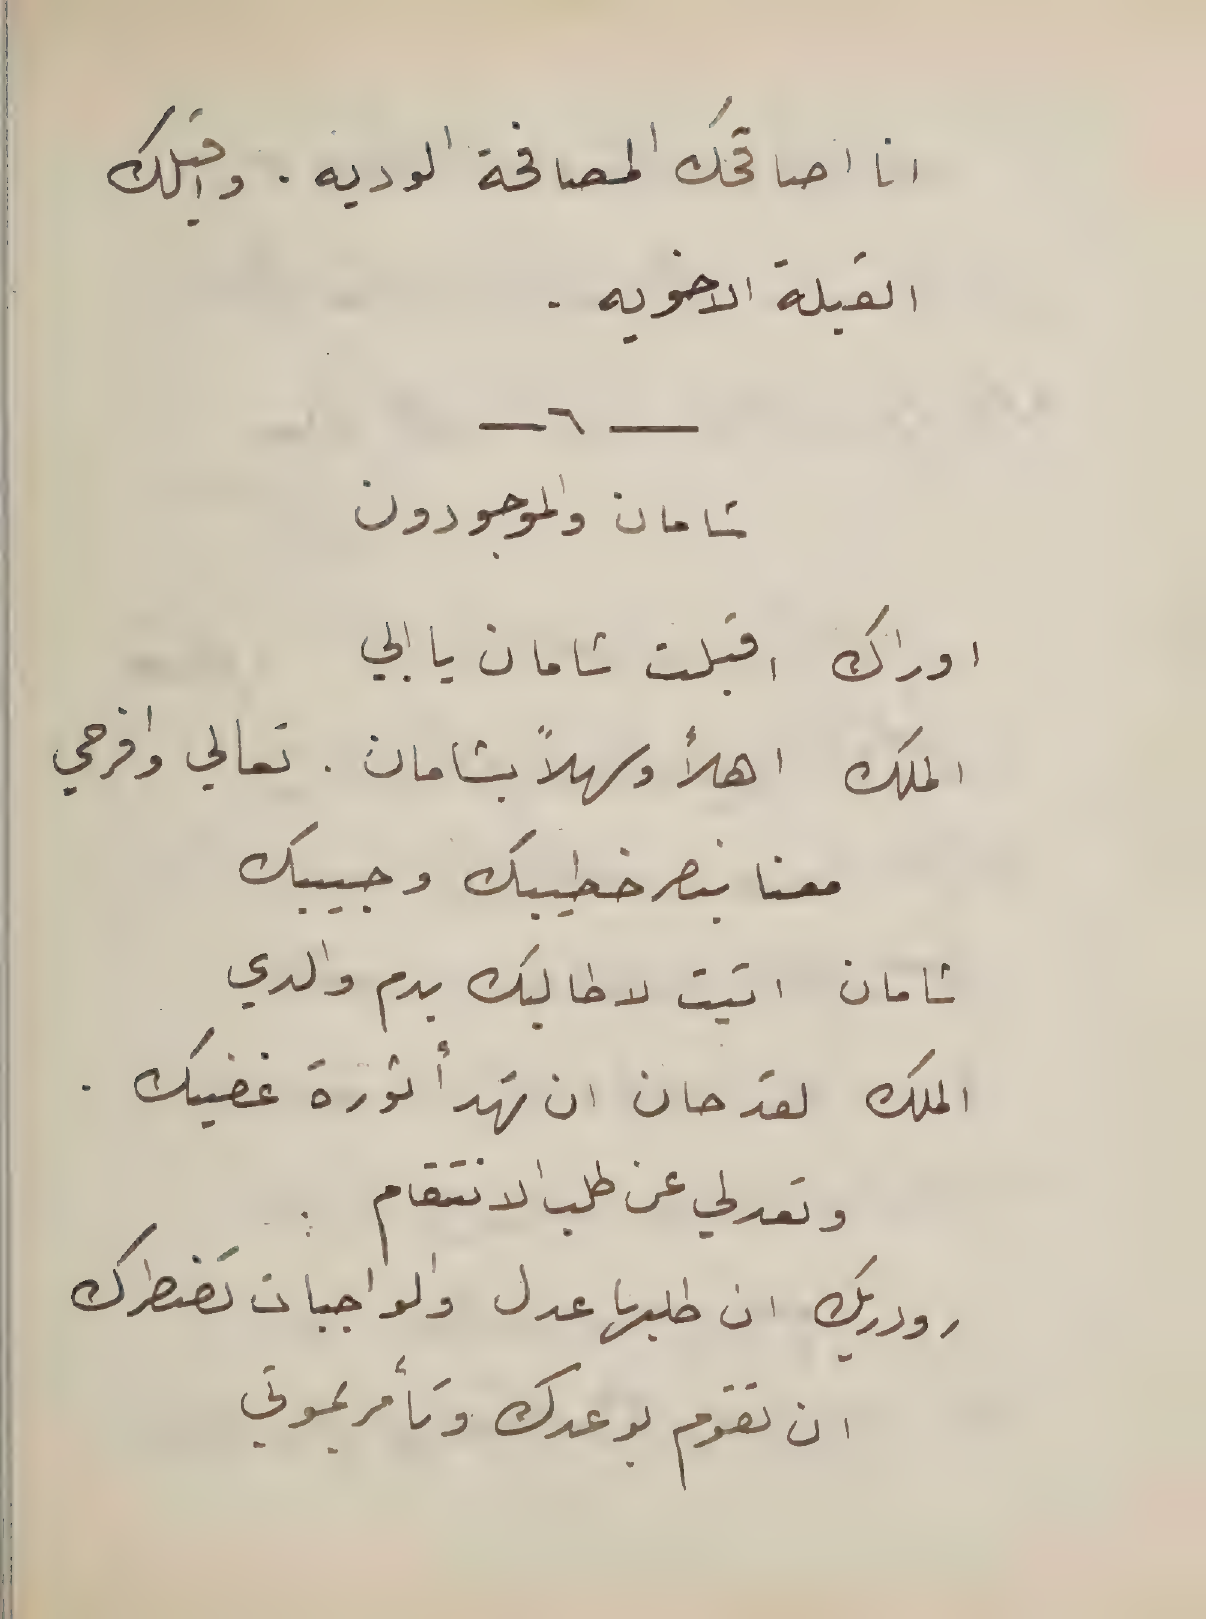 انا اصافحك المصافحة الوديه . واقبلك
القبلة الاخويه .
— ٦ —
شامان والموجودون
اوراك اقبلت شامان يا ابي
الملك اهلاً وسهلاً بشامان . تعالي وافرحي
معنا بنصر خطيبك وحبيبك
شامان اتيت لاطالبك بدم والدي
الملك لقد حان ان تهدأ ثورة غضبك .
وتعدلي عن طلب الانتقام
رودريك ان طلبها عدل والواجبات تضطرك
ان تقوم بوعدك وتأمر بموتي